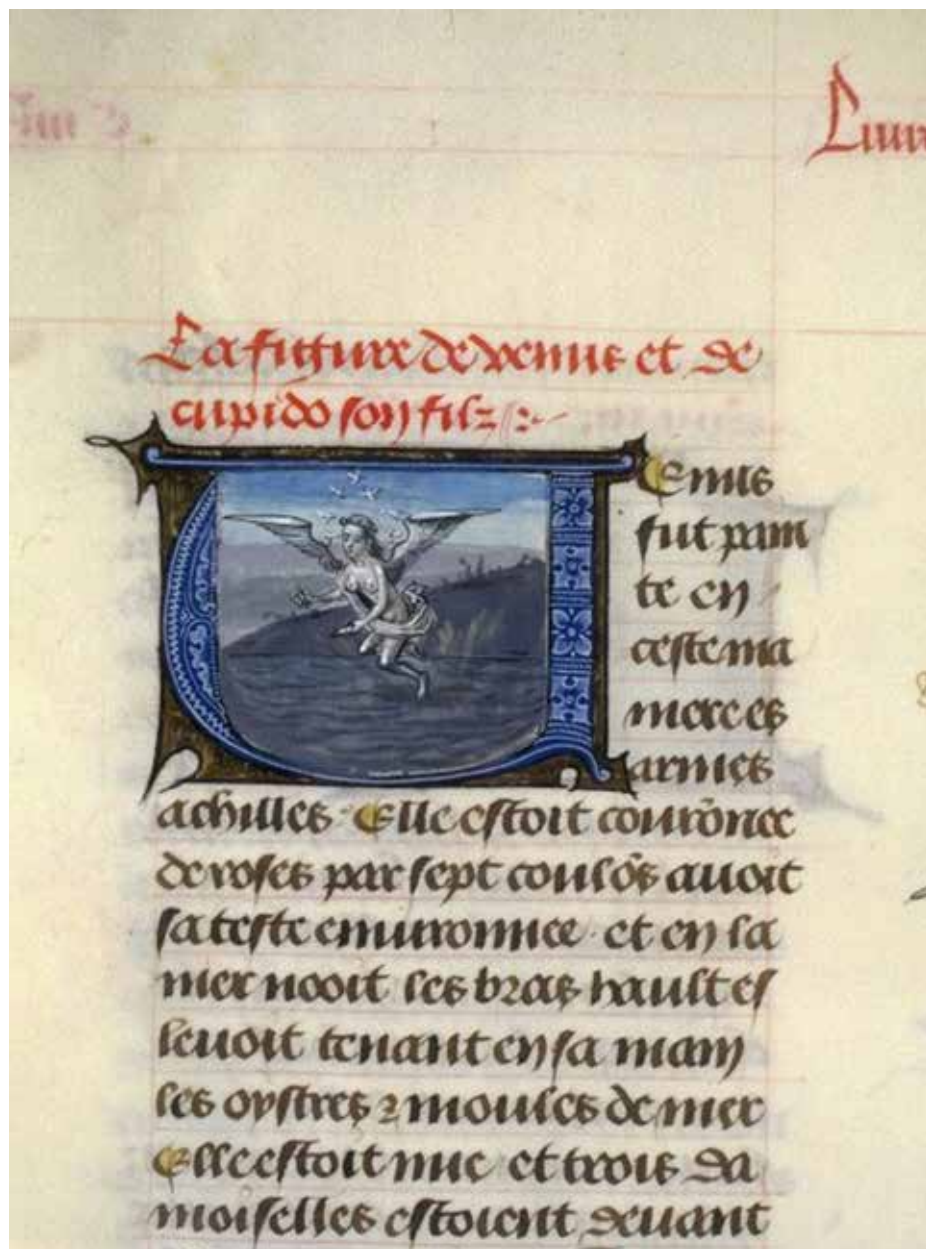 Liure
La figure de venus et de
cupido son filz
Venus
fut pain
te en
ceste ma
niere es
armes
achilles Elle estoit courōnee
de roses par sept coulōs auoit
sa teste enuironnee et en la
mer nooit les bras hault es
leuoit tenant en sa main
les oystres ⁊ moules de mer
Elle estoit nue et trois da
moiselles estoient deuant